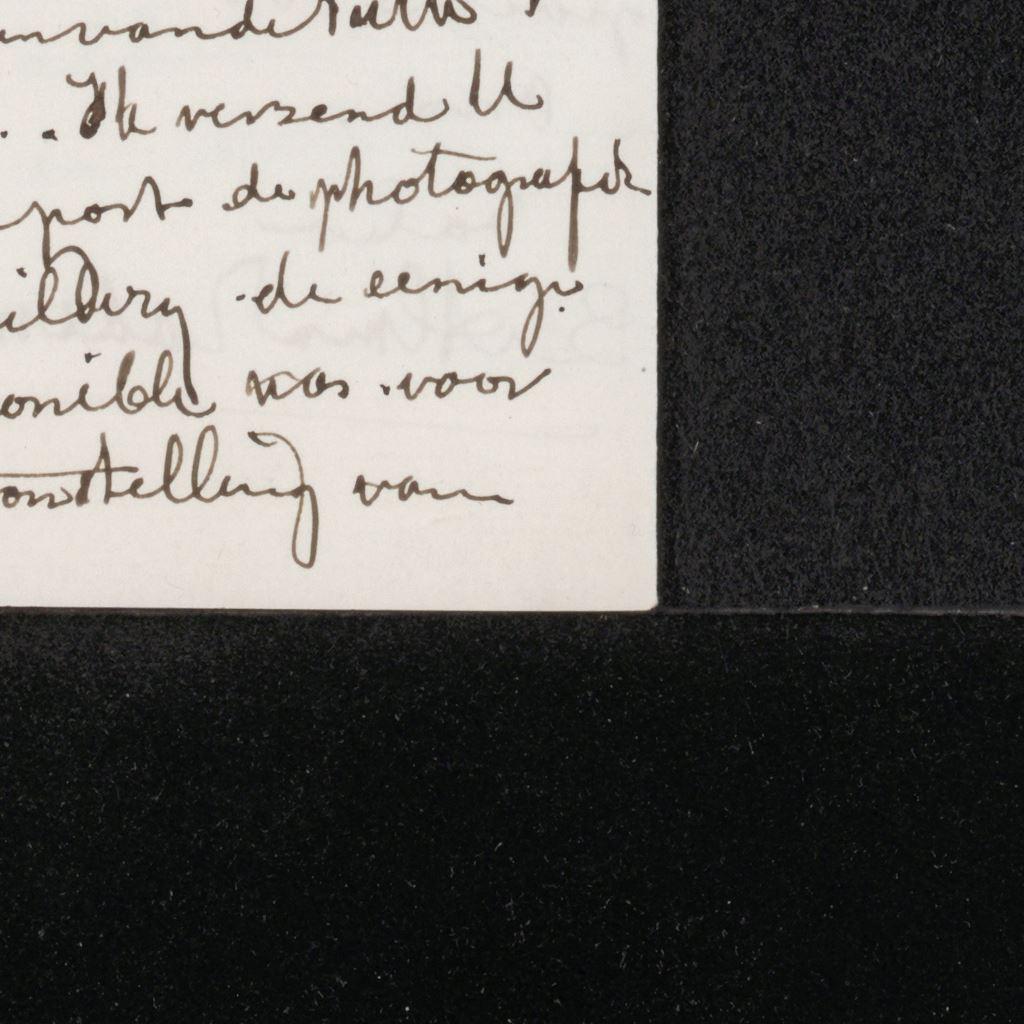 .. Ik verzend U
post de photografie
ildery de eenige
onible was voor
onstelling van